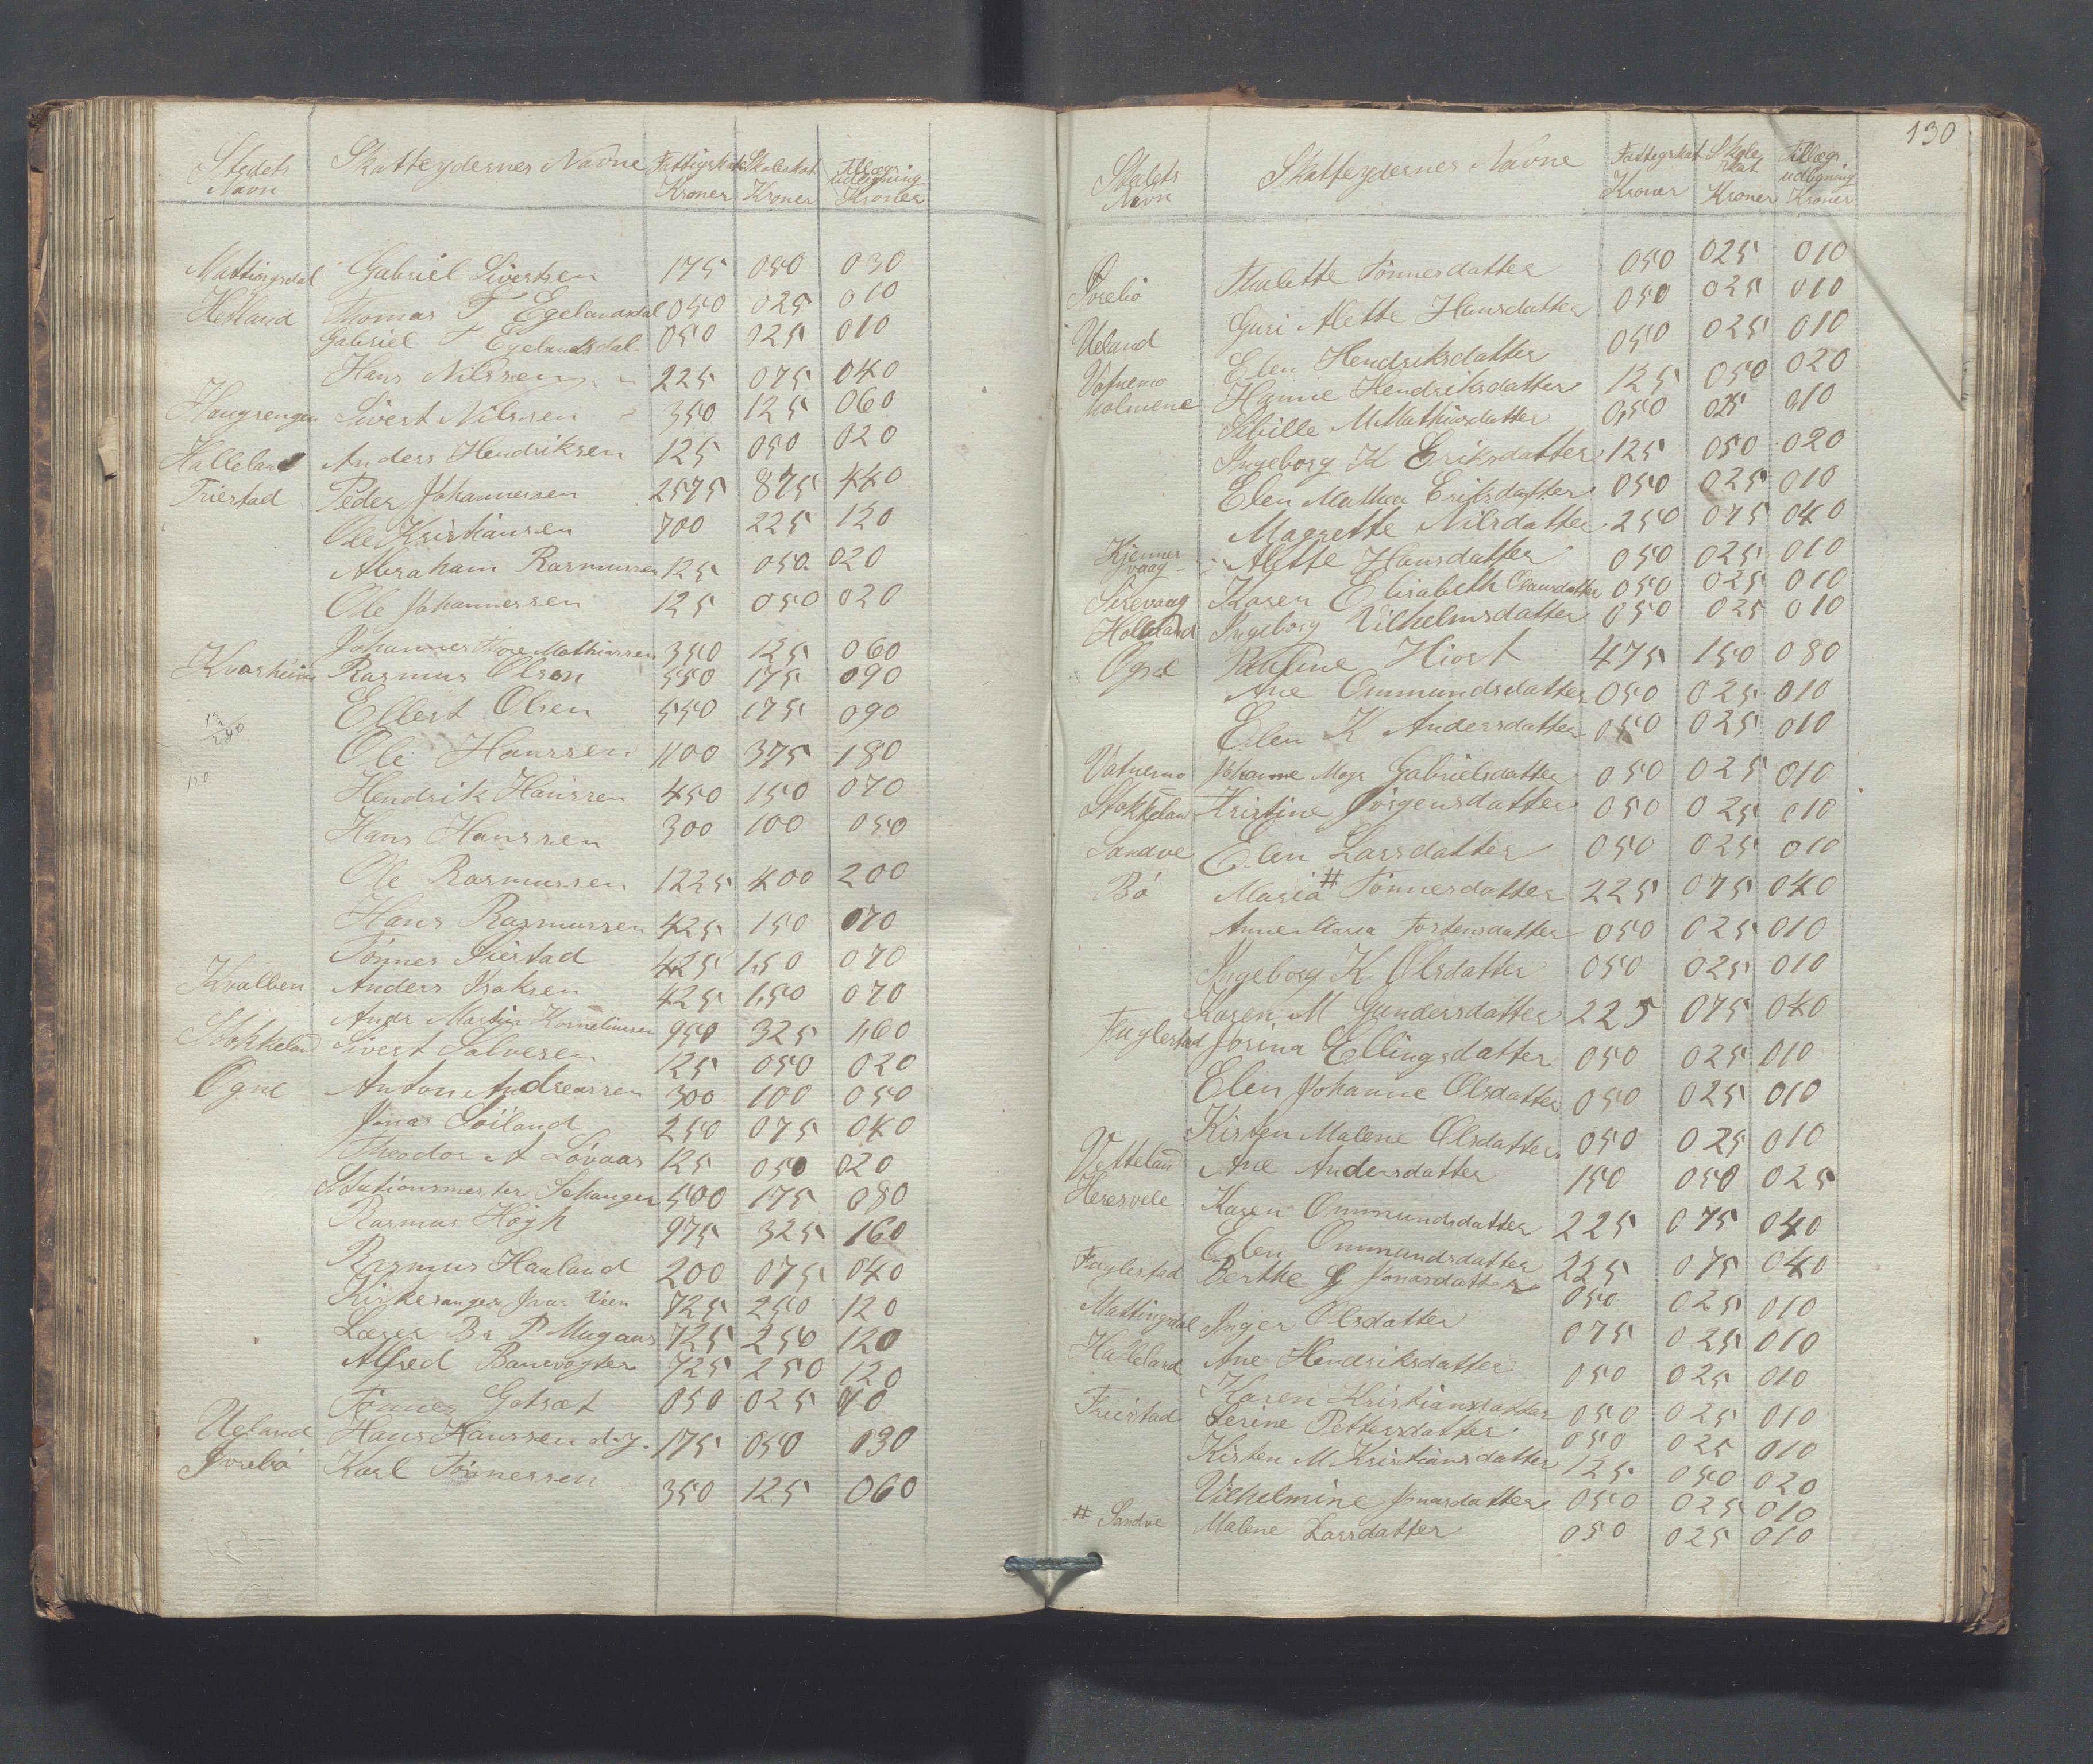 Stedets Navn Skatteydernes Navne Fattigskat Kroner Skoleskat Kroner Tillægs udligning Kroner
Mattingsdal Gabriel Sivertsen 175 050 030
Hetland Thomas T Egelandsdal 050 025 010
Gabriel T Egelandsdal 050 025 010
Hans Nilssen 225 075 040
Haugrengen Sivert Nilssen 350 125 060
Halleland Anders Hendriksen 125 050 020
Tuestad Peder Johannessen 2575 875 440
Ole Kristiansen 700 225 120
Abraham Rasmussen 125 050 020
Ole Johannessen 125 050 020
Johannes Mathiassen 350 125 060
Kvasheim Rasmus Olsen 550 175 090
Ellert Olsen 550 175 090
Ole Hanssen 1100 375 180
Hendrik Hanssen 450 150 070
120
Hans Hanssen 300 100 050
Ole Rasmussen 1225 400 200
Hans Rasmussen 425 150 070
Tønnes 425 150 070
Kvalben Anders Isaksen 425 150 070
Andr Martin Korneliussen 950 325 160
Stokkeland Sivert Salvesen 125 050 020
Ogne Anton Andreassen 300 100 050
Jonas Søiland 250 075 040
Theodor A Løvaas 125 050 020
Stationsmester Schanger 500 175 080
Rasmus Høgh 975 325 160
Rasmus Haaland 200 075 040
Kirkesanger Ivar Lien 725 250 120
Lærer Br P Mugaas 725 250 120
Alfred Banevogter 725 250 120
Tønnes Gotsat 050 025 10
Ueland Hans Hanssen d.y. 175 050 030
Josebø Karl Tønnessen 350 125 060
130
Stedets Navn Skatteydernes Navne Fattigskat Kroner Skoleskat Kroner Tillægs udligning Kroner
Josebø Malette Tønnesdatter 050 025 010
Guri Alette Hansdatter 050 025 010
Ueland Elen Hendriksdatter 050 025 010
Vatnemo Hanne Hendriksdatter 125 050 020
holmene Sibille M Mathiasdatter 050 025 010
Ingeborg K Eriksdatter 125 050 020
Elen Mathea Eriksdatter 050 025 010
Magrette Nilsdatter 250 075 040
Kjennes vaag Alette Hansdatter 050 025 010
Sirevaag Karen Elisabeth Clausdatter 050 025 010
Holleland Ingeborg Vilhelmsdatter 050 025 010
Ogne Pauline Hiort 475 150 080
Ane Ommundsdatter 050 025 010
Elen K Andersdatter 050 025 010
Vatnemo Johanne Marja Gabrielsdatter 050 025 010
Stokkeland Kristine Jørgensdatter 050 025 010
Sandve Elen Larsdatter 050 025 010
Bø Maria # Tønnesdatter 225 075 040
Anne Maria Torstensdatter 050 025 010
Ingeborg K Olsdatter 050 025 010
Karen M Gundersdatter 225 075 040
Fuglestad Josina Ellingsdatter 050 025 010
Elen Johanne Olsdatter 050 025 010
Kirsten Malene Olsdatter 050 025 010
Vetteland Ane Andersdatter 150 050 025
Heresvele Karen Ommundsdatter 225 075 040
Elen Ommundsdatter 225 075 040
Fuglestad Berthe G Jonasdatter 050 025 010
Mattingsdal Inger Olsdatter 075 025 010
Halleland Ane Hendriksdatter 050 025 010
Karen Kristiansdatter 050 025 010
Tuestad Serine Pettersdatter 050 025 010
Kirsten M Kristiansdatter 125 050 020
Vilhelmine Jonasdatter 050 025 010
# Sandve Malene Larsdatter 050 025 010